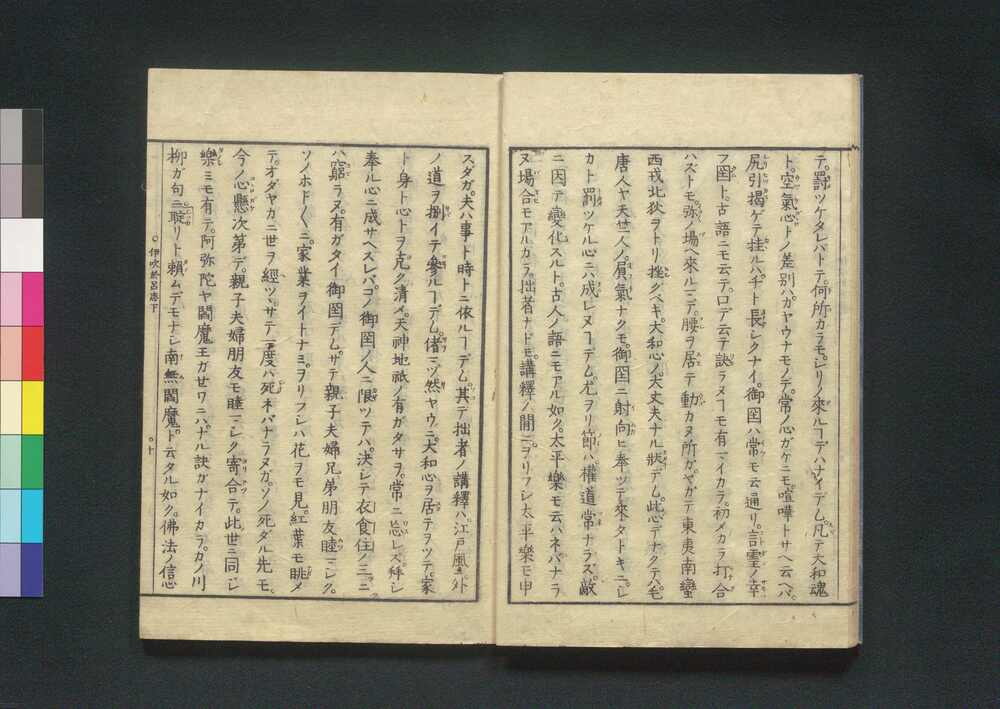 テ。罰ツケタレバトテ。何所カラモ。シリノ來ルヿデハナイデム。凡テ大和魂
ト。空氣心トノ差別ハ。ガヤウナモノデ。常ノ心ガケニモ喧嘩トサヘ云ヘバ。
尻引揭ゲテ挂ルハ。ヂト長シクナイ。御国ハ常モ云通リ。言霊ノ幸
フ国ト。古語ニモ云テ。口デ云テ訣ラヌヿモ有マイカラ。初メカラ打合
ハズトモ。弥ノ場ヘ來ルニテ。腰ヲ居テ動カヌ所ガ。ヤガテ東夷南蠻
西戎北狄ヲトリ挫グベキ。大和心ノ大丈夫ナル狀デム。此心デナクテハ。毛
唐人ヤ天竺人ノ。屓氣ナクモ。御国ニ射向ヒ奉ツテ來タトキニ。シ
カト罰ツケル心ニハ成レヌヿデム。尤ヲリ節ハ權道常ナラズ。敵
ニ因テ變化スルト。古人ノ語ニモアル如ク。太平樂モ云ハネバナラ
ヌ場合モアルカラ。拙者ナドモ。講釋ノ間ニ。ヲリフシ太平樂モ申
スダガ。夫ハ事ト時トニ依ルヿデム。其デ拙者ノ講釋ハ。江戸風ニ外
ノ道ヲ捌イテ参ルヿデム。偖マヅ然ヤウニ。大和心ヲ居テヲツテ。家
ト身ト心トヲ克ク清メ。天神地祇ノ有ガタサヲ。常ニ忘レズ。拜シ
奉ル心ニ成サヘスレバ。コノ御国ノ人ニ限ツテハ。決シテ衣食住ノ三ニ
ハ窮ラヌ。有ガタイ御国デム。ザテ親子夫婦兄弟朋友睦マシク。
ソノホド〱ニ。家業ヲイトナミ。ヲリフシハ花ヲモ見。紅葉モ眺メ
テ。オダヤカニ世ヲ經ツヽ。サテ一度ハ死ネバナラヌガ。ソノ死ダル先モ。
今ノ心懸次第デ。親子夫婦朋友モ睦マシク寄合テ。此世ニ同ジ
樂ミモ有テ。阿弥陀ヤ閻魔王ガセワニハ。ナル訣ガナイカラ。カノ川
柳ガ句ニ。聢リト賴ムデモナシ南無閻魔。ト云タル如ク。佛法ノ信心
○伊吹於呂志下
○十